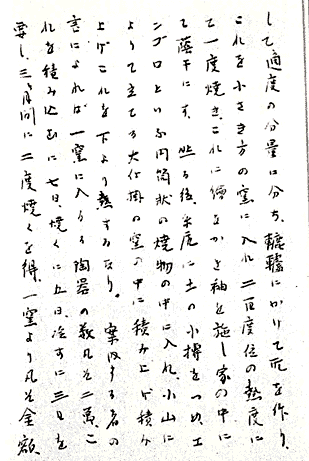 して適度の分量に分ち、轆轤にかけて形を作り、
これを小さき方の窯に入れ二百度位の熱度に
て一度焼き、これに繪をかき釉を施し家の中に
て蔭干にす、然る後、末底に土の小棒をつめ、エ
ンゴロといふ円筒状の焼物の中に入れ、小山に
よりて立てる大仕掛の窯の中に積み上げ積み
上げこれを下より熱するなり。案内する者の
言によれば一窯に入るる陶器の数凡そ二萬、こ
れを積み込むに七日、焼くに五日、冷すに三日を
要し、三ヶ月間に二度焼くを得、一窯より凡そ金額